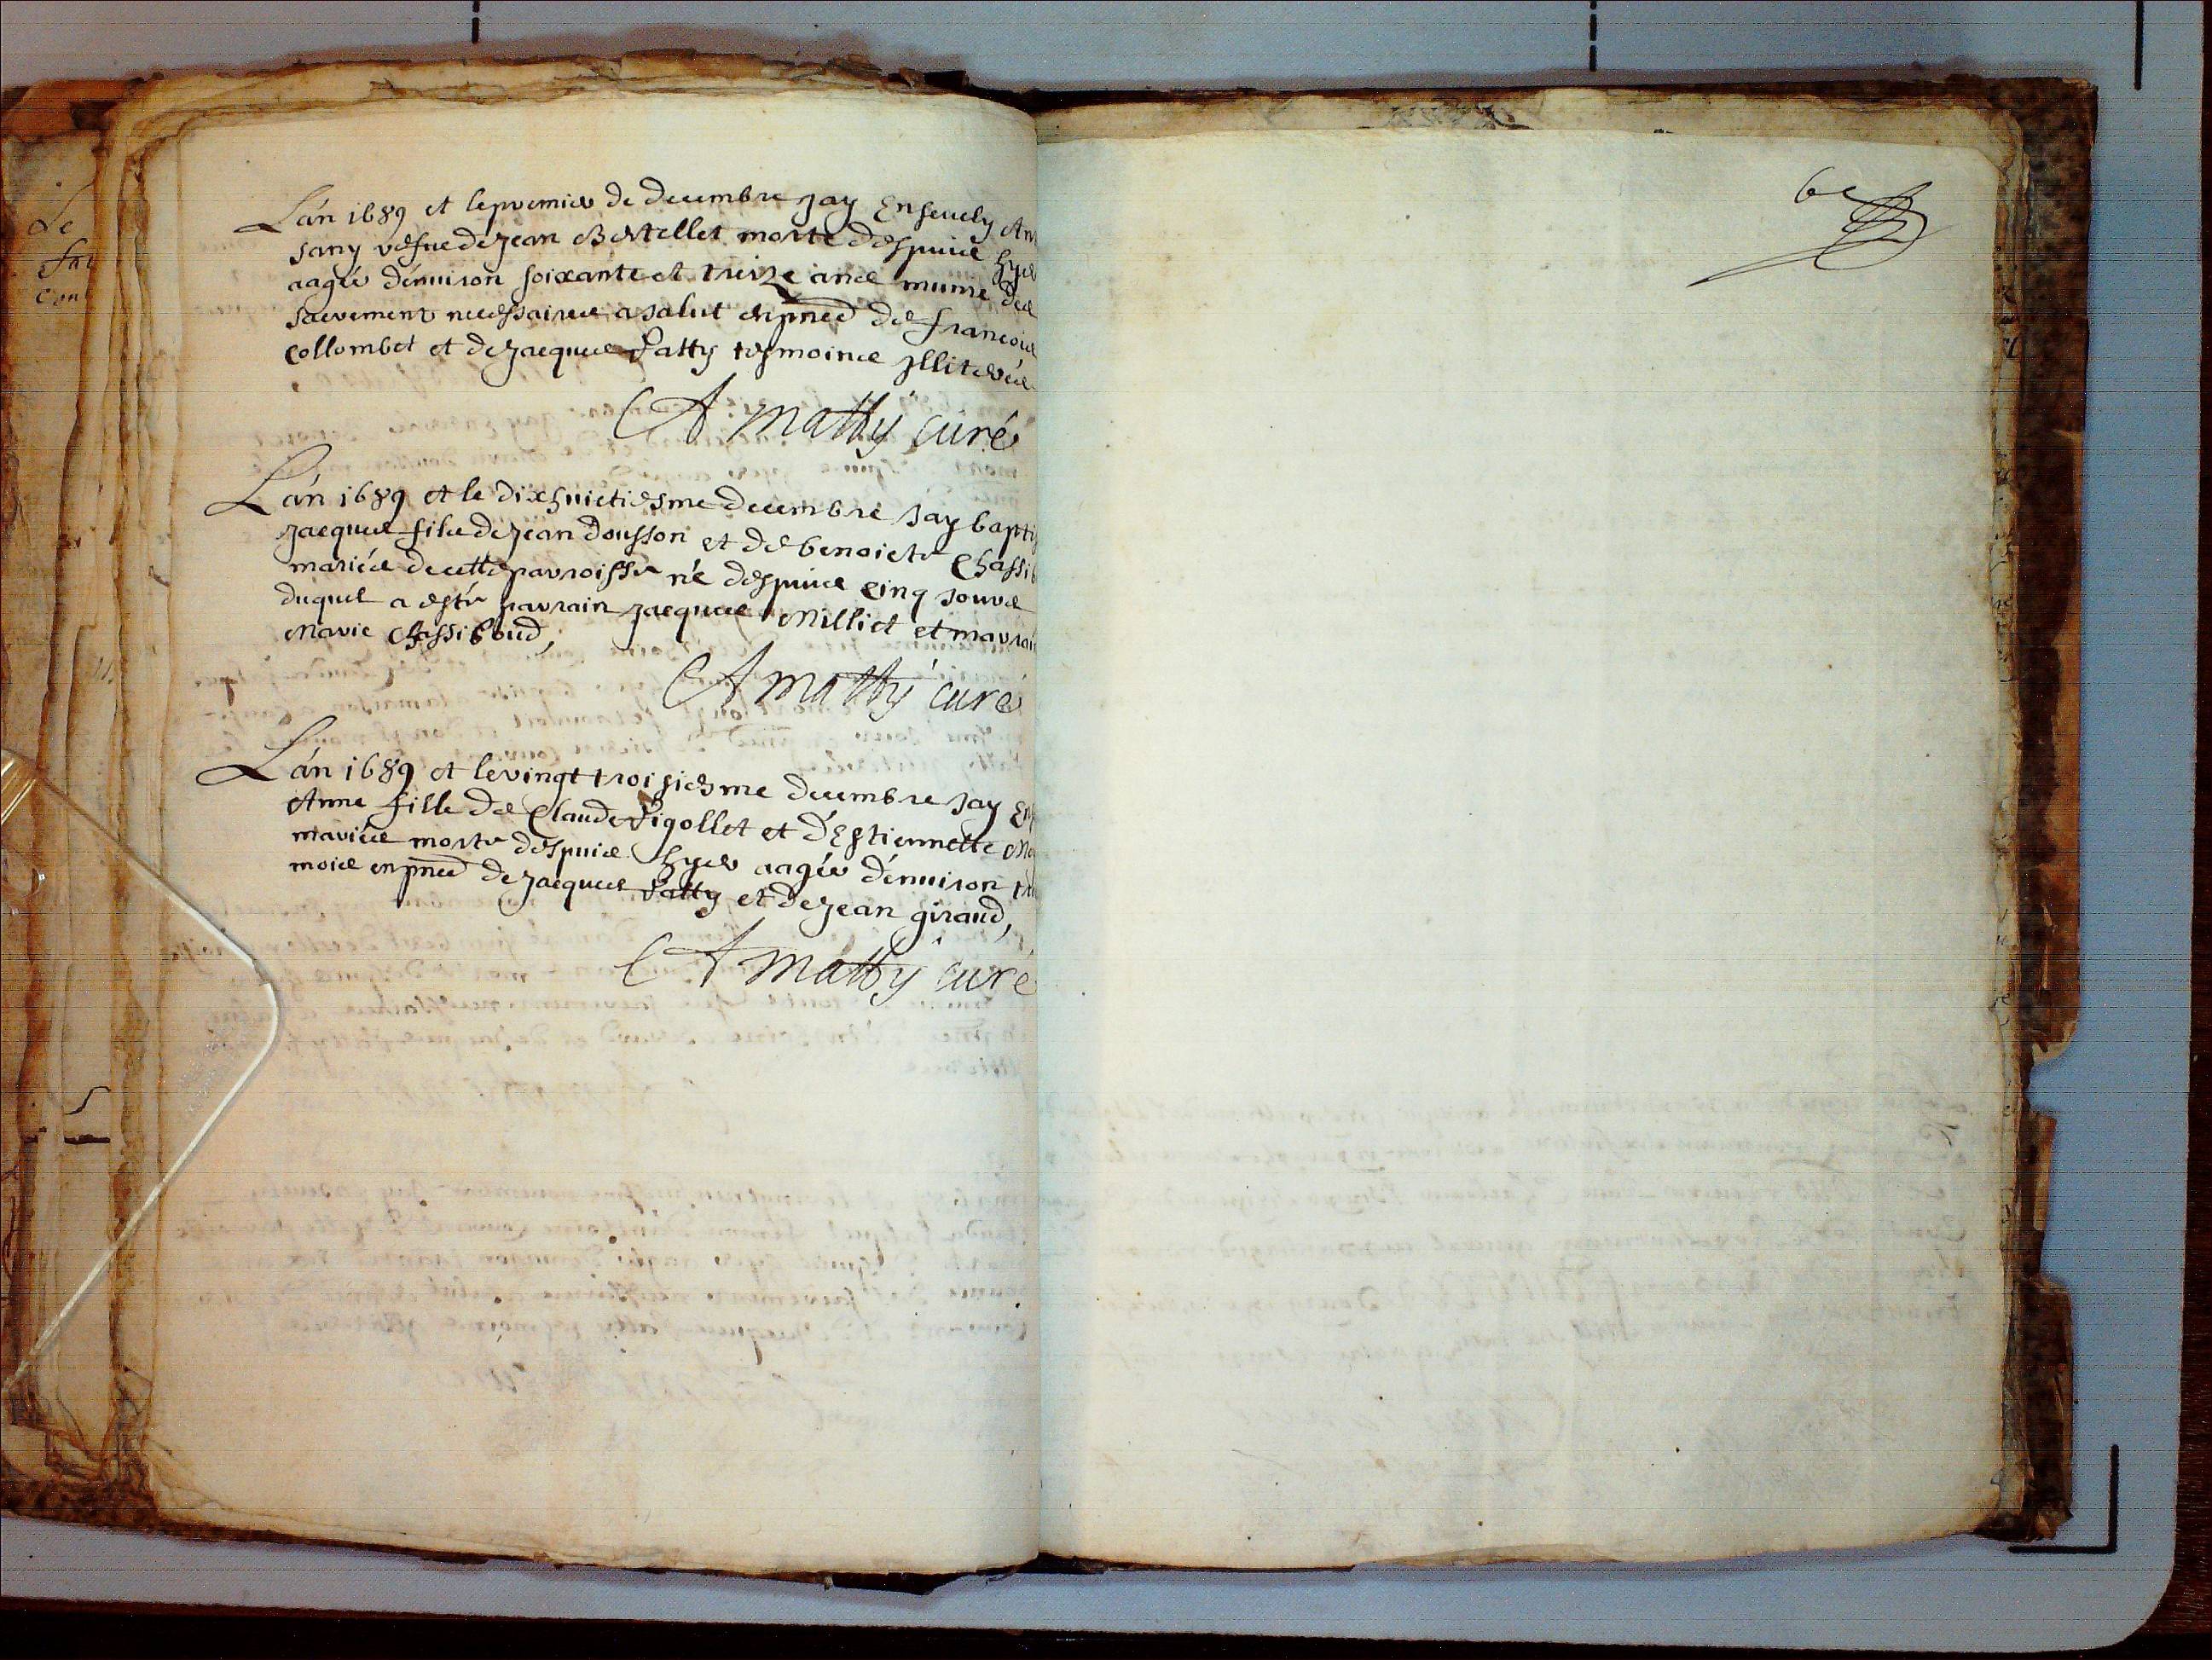 Lán 1689 et le premier de decembre jay Enseuely
Jany vesue de jean Bertellet morte despuis hyer
aagée dénuiron soixante et treize ans munie des
sacrements necessaires a salut en pñce de francois
collombet et de jacques Patty tesmoins jllitérés
A matty curé
Lán 1689 et le dixhuictiesme decembre jay bapti
jacques fils de jean dousson et de benoicte Chassib
mariés de cette parroisse né despuis cinq jours
duquel a esté parrain jacques Milliet et marrai
Marie Chassiboud,
A matty curé
Lán 1689 et le vingt troisiesme decembre jay En
Anne fille de Claude Pigollet et d'Estiennette
mariés morte despuis hyer aagée dénuiron
mois en pñce de jacques Patty et de jean giraud,
A matty curé
Le